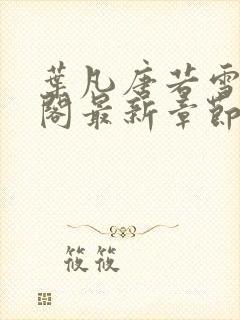 葉凡唐若雪
閣最新章節
筱筱